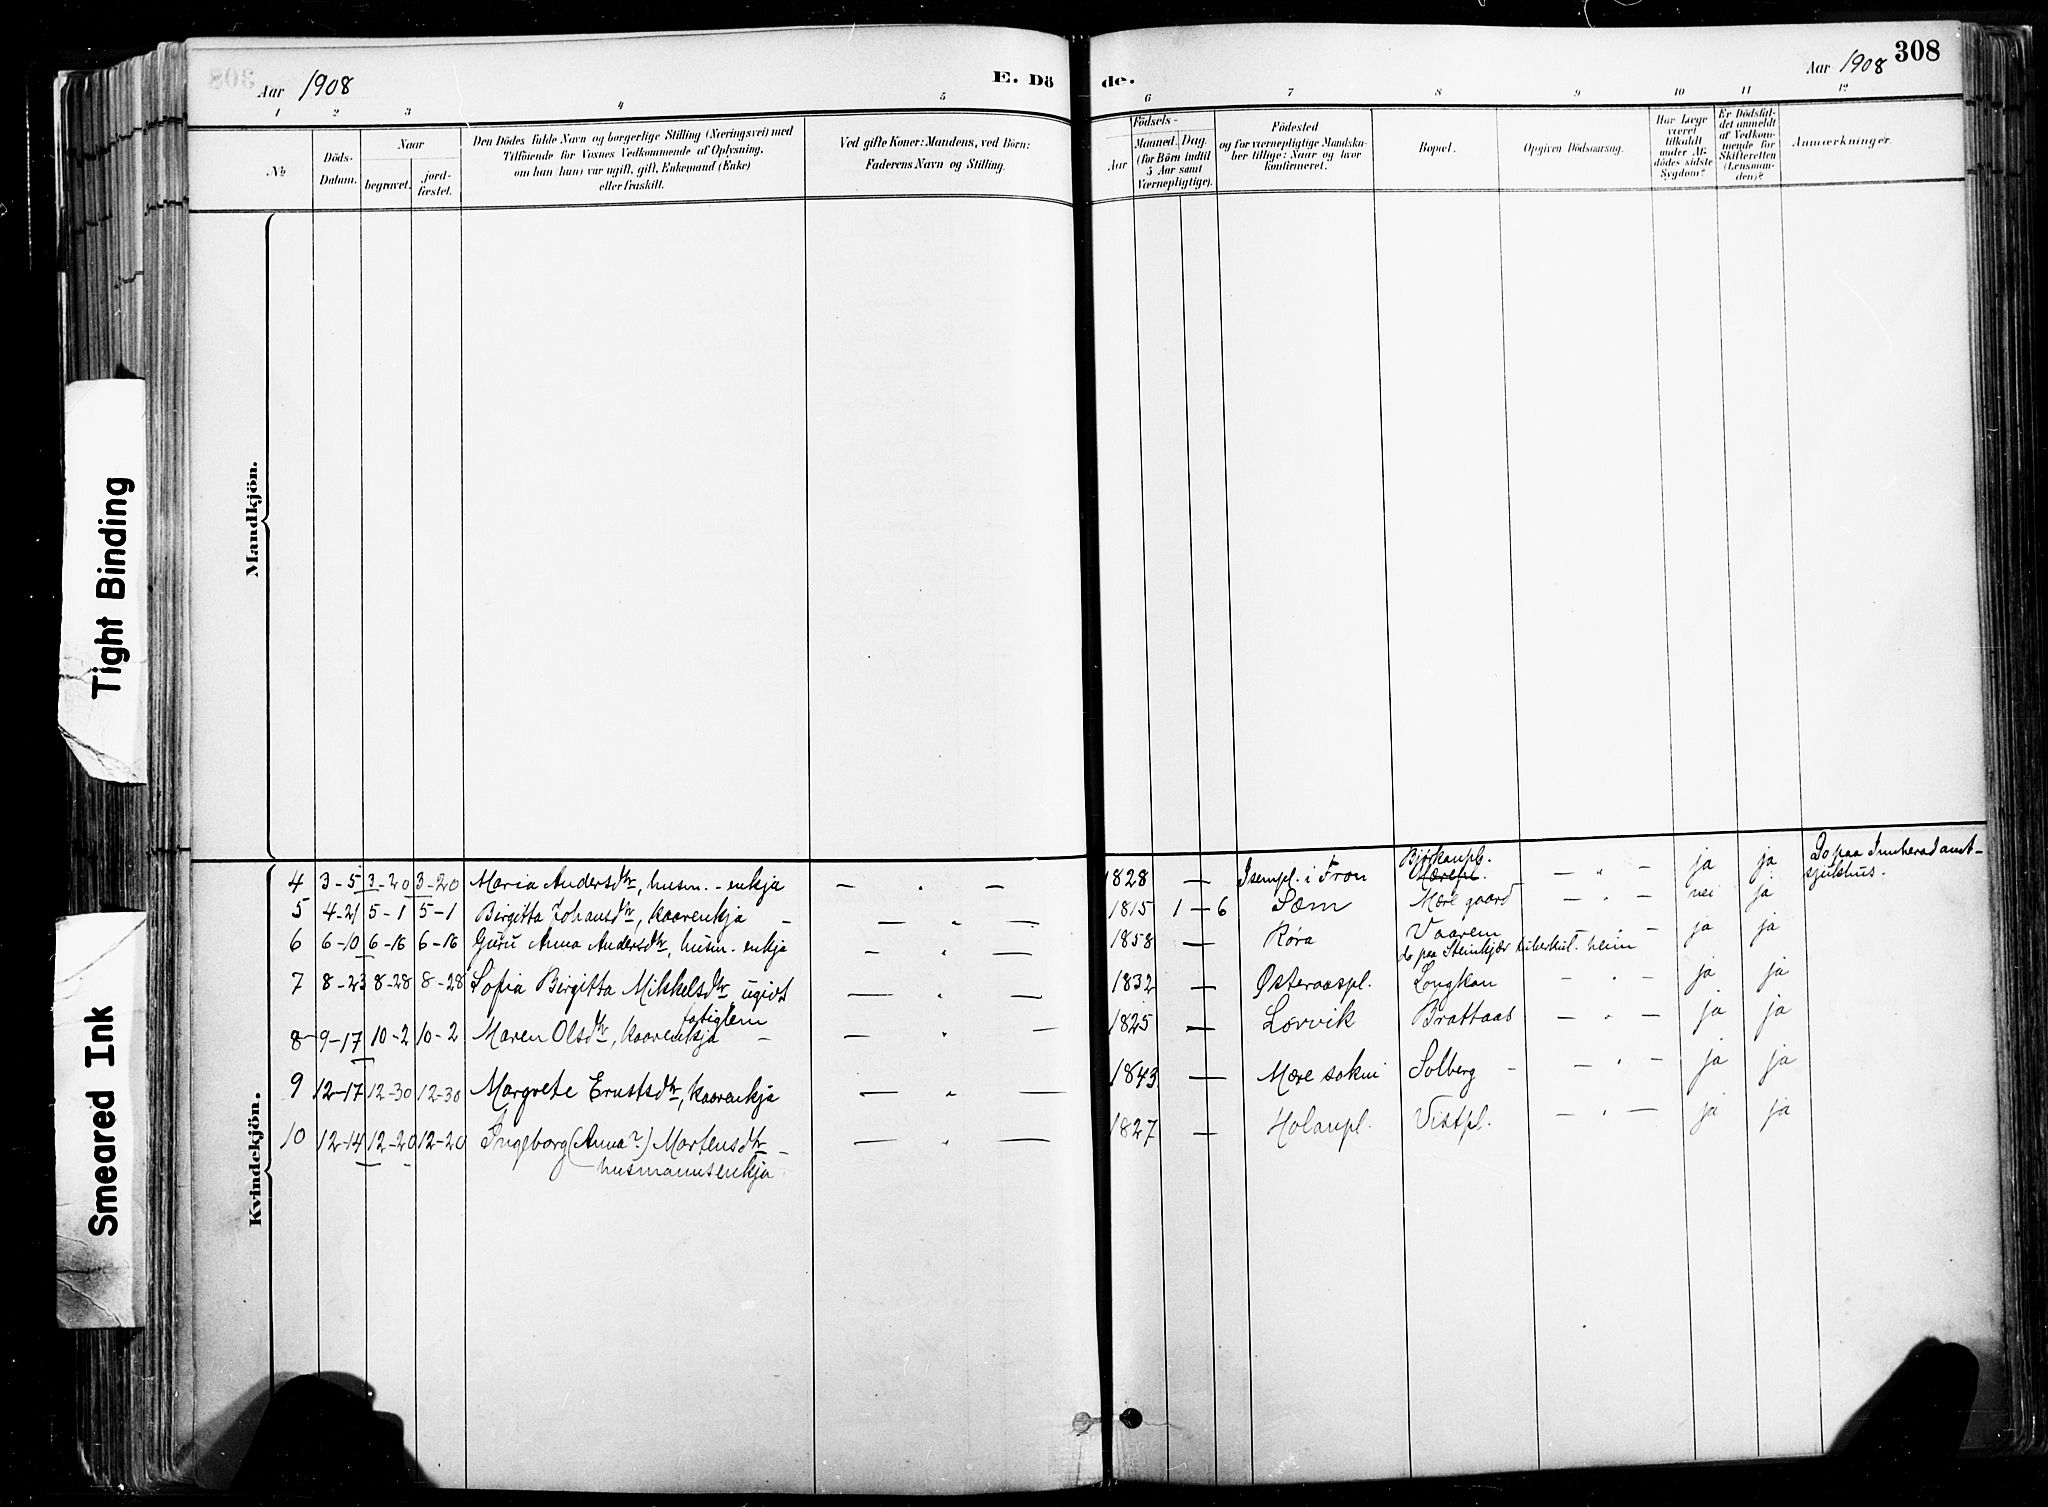 308
Aar 1908
E. Dö de.
Aar 1908
1 2 3 4 5 6 7 8 9 10 11 12
No
Döds-Datum.
Naar
begravet.
jord-fæstet.
Den Dödes fulde Navn og borgerlige Stilling (Næringsvei) med
Tilföiende for Voxnes Vedkommende af Oplysning,
om han (hun) var ugift, gift, Enkemand (Enke)
eller fraskilt.
Ved gifte Koner: Mandens, ved Börn:
Faderens Navn og Stilling.
Födsels-
Aar
Maaned. Dag.
(for Börn indtil
5 Aar samt
Værnepligtige).
Födested
og for værnepligtige Mandska-
ber tillige: Naar og hvor
konfirmeret.
Bopæl.
Opgiven Dödsaarsag.
Har Læge
været
tilkaldt
under Af-
dödes sidste
Sygdom?
Er Dödsfal-
det anmeldt
af Vedkom-
mende for
Skifteretten
(Lensman-
den)?
Anmærkninger.
Mandkjön.
Kvindekjön.
4 3-5 3-20 3-20 Maria Andersdtr, husm.-enkja — " — 1828 — Isempl. i Fron Bjørkanpl. Mærepl. — " — ja ja Do paa Innherad amt-sjukhus.
5 4-21 5-1 5-1 Birgitta Johansdtr, kaarenkja — — " — 1815 1 — 6 Sæm Mære gaard — " — nei ja
6 6-10 6-16 6-16 Guru Anna Andersdtr, husm. enkja — " — 1858 — Røra Vaarem — " — ja ja
do paa Steinkjær tuberkul. heim
7 8-23 8-28 8-28 Sofia Birgitta Mikkelsdtr ugivt — " — 1832 — Østeraaspl. Longkan — " — ja ja
fatiglem
8 9-17 10-2 10-2 Maren Olsdtr, kaarenkja — — " — 1825 — Lorvik Brattaas — " — ja ja
9 12-17 12-30 12-30 Margrete Ernstsdtr, kaarenkja — " — 1843 — Mære sokni Solberg — " — ja ja
10 12-14 12-20 12-20 Ingeborg (Anna?) Mortensdtr — — " — 1827 — Holanpl. Vistpl. — " — ja ja
husmannsenkja
Tight Binding
Smeared Ink